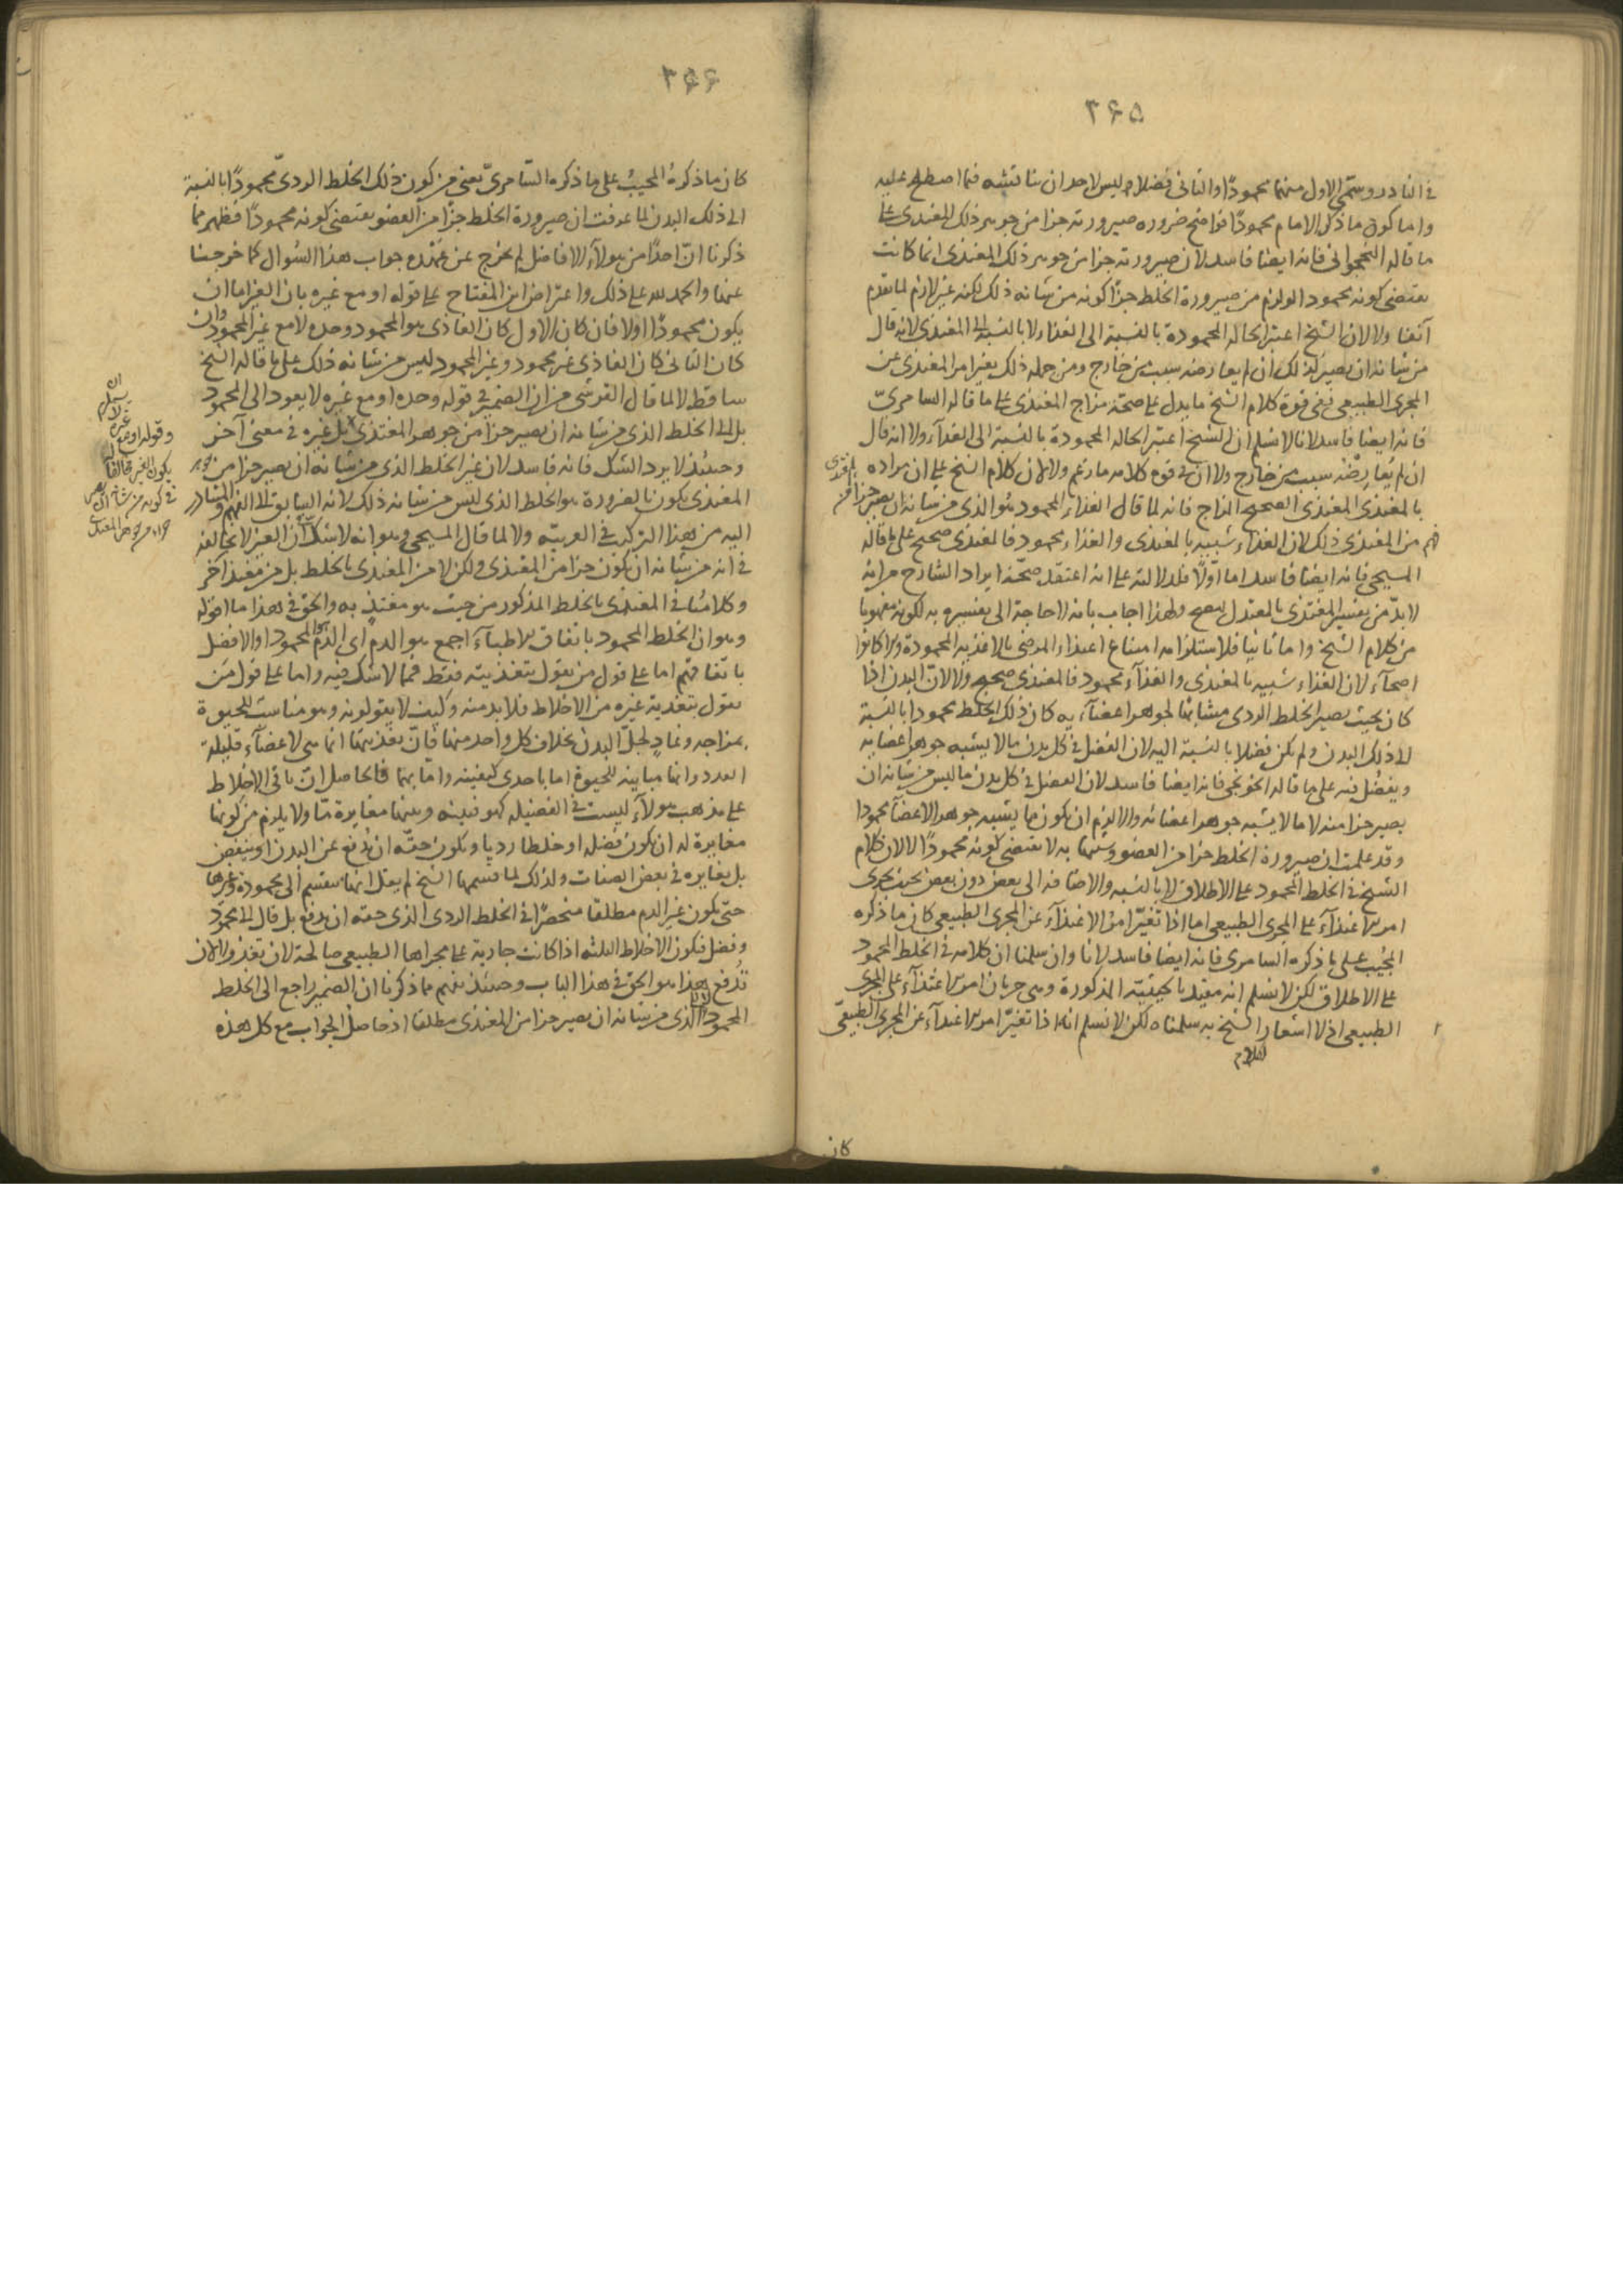 ٢٦٥
في النادر وسمّى الاول منهما محمودًا والثاني فضلا وليس لاحد ان يناقشه فيما اصطلح عليه
واما كون ما ذكره الامام محمودًا فواضح ضرورة صيرورته جزا من جوهر ذلك المغتذى على
ما قاله النخجوانى فانه ايضا فاسد لان صيرورته جزا من جوهر ذلك المغتذى انما كانت
يقتضى كونه محمودا لو لزم من صيرورة الخلط جزًا كونه من شانه ذلك لكنه غير لازم لما تقدم
آنفا ولا لان الشيخ اعتبر الحالة المحمودة بالنسبة الى الغذاء لا بالنسبة الى المغتذى لانه قال
من شانه ان يصير كذلك ان لم يعارضه سبب من خارج ومن جملة ذلك تغير امر المغتذى عن
المجرى الطبيعى ففى قوة كلام الشيخ ما يدل على صحة مزاج المغتذى على ما قاله السامرىّ
فانه ايضا فاسد لانا لا نسلم ان الشيخ اعتبر الحالة المحمودة بالنسبة الى الغذآء ولا انه قال
ان لم يعارضه سبب من خارج ولا ان فى قوة كلامه ما زعم ولا لان كلام الشيخ على ان مراده
بالمغتذى المغتذى الصحيح المزاج فانه لما قال الغذاء المحمود هو الذى من شانه ان يصير جزا من
فهم من المغتذى ذلك لان الغذاء شبيه بالمغتذى والغذاء محمود فالمغتذى صحيح على ما قاله
المسيحى فانه ايضا فاسد اما اوّلًا فلدلالته على انه اعتقد صحّة ايراد الشارح من انه
لا بدّ من تفسير المغتذى بالمعتدل ليصح ولهذا اجاب بانه لا حاجة الى تفسيره به لكونه مفهوما
من كلام الشيخ واما ثانيا فلاستلزامه امتناع اغتذاء المرضى بالاغذية المحمودة وبرا كانوا
اصحآء لان الغذاء شبيه بالمغتذى والغذآء محمود فالمغتذى صحيح ولا لانّ البدن اذا
كان بحيث يصير الخلط الردى مشابهًا لجوهر اعضآءيه كان ذلك الخلط محمودا بالنسبة
الى ذلك البدن ولم يكن فضلا بالنسبة اليه لان الفضل فى كل بدن ما لا يشبه جوهر اعضايه
ويفضُل فيه على ما قاله الخونجى فانه ايضا فاسد لان الفضل فى كل بدن ما ليس من شانه ان
يصير جزا منه لا ما لا يشبه جوهر اعضائه والا لزم ان يكون ما يشبه جوهر الاعضآ محمودا
وقد علمت ان صيرورة الخلط جزا من العضو وشبيها به لا يقتضى كونه محمودًا لا لان كلام
الشيخ فى الخلط المحمود على الاطلاق لا بالنسبه والاضافه الى بعض دون بعض بحيث يجرى
امر اغتذآءه على المجرى الطبيعى اما اذا تغيّر امر الاغتذآء عن المجرى الطبيعى كان ما ذكره
المجيب على ما ذكره السامرى فانه ايضا فاسد لانا وان سلمنا ان كلامه فى الخلط المحمود
على الاطلاق لكن لا نسلم انه مقيد بالحيثيّة المذكورة وهى جريان امر اغتذآء على المجرى
الطبيعى اذ لا اشعار الشيخ به سلمناه لكن لا نسلم انه اذا تغيّر امر اغتذآء عن المجرى الطبيعىّ
كان
٢٦٦
كان ما ذكرهُ المجيبُ على ما ذكره السّامرىّ يعنى من كون ذلك الخلط الردىّ محمودًا بالنسبة
الى ذلك البدن لما عرفت ان صيرورة الخلط جزًا من العضو يقتضى كونه محمودًا فظهر مما
ذكرنا انّ احدًا من هولآء الافاضل لم يخرج عن عُهدة جواب هذا السُوال كما خرجنا
عنها والحمد لله على ذلك واعتراض ابن المفتاح على قوله او مع غيره بان الغير اما ان
يكون محمودًا اولا فان كان الاول كان الغاذى هو المحمود وحده لا مع غير المحمود وان
كان الثانى كان الغاذى غير محمود وغير المحمود ليس من شانه ذلك على ما قاله الشيخ
ساقط لا لما قال القرشى من ان الضمير فى قوله وحده او مع غيره لا يعود الى المحمود
بل الى الخلط الذى من شانه ان يصير جزا من جوهر المغتذى بل غيره فى معنى آخر
وحينئذ لا يرد الشك فانه فاسد لان غير الخلط الذى من شانه ان يصير جزا من جوهر
المغتذى يكون بالضرورة هو الخلط الذى ليس من شانه ذلك لانه السابق الى الفهم والمتبادر
اليه من هذا التركيب فى العربيّه ولا لما قال المسيحى وهو انه لا شكّ ان الغير لا يخالفه
فى انه من شانه ان يكون جزا من المغتذى ولكن لا من المغتذى بالخلط بل من مغتذ آخر
وكلامنا فى المغتذى بالخلط المذكور من حيث هو مغتذٍ به والحق فى هذا ما اقوله
وهو ان الخلط المحمود باتفاق الاطبآء اجمع هو الدم اى الدم هو المحمود او الافضل
باتفاقهم اما على قول من يقول بتغذيته فقط فمما لا شك فيه واما على قول من
يقول بتغذية غيره من الاخلاط فلا بد منه وكيف لا يقولونه وهو مناسب للحيوة
بمزاجه وغاذٍ لجلّ البدن بخلاف كل واحد منها فانّ تغذيتها انما هى لاعضآء قليلة
العدد وانها مباينه للحيوة اما باحدى كيفيته واما بهما فالحاصل انّ باقى الاخلاط
على مذهب هولآء ليست فى الفضيله كهو فبينه وبينها مغايرة مّا ولا يلزم من كونها
مغايرة له ان يكون فضله او خلطا رديا ويكون حقّه ان يُدفع عن البدن او ينفض
بل يغايره فى بعض الصفات ولذلك لما قسمها الشيخ لم يقل انها تنقسم الى محمودة وغيرها
حتى يكون غير الدم مطلقا منحصرًا فى الخلط الردى الذى حقه ان يدفع بل قال الى محمود
وفضل فيكون الاخلاط الثلثه اذا كانت جارية على مجراها الطبيعى صالحة لان تغذو ولا لان
تُدفع هذا هو الحق فى هذا الباب وحينئذ نفهم ما ذكرنا ان الضمير راجع الى الخلط
المحمود الذى من شانه ان يصير جزا من المغتذى مطلقا اذ حاصل الجواب مع كل هذه